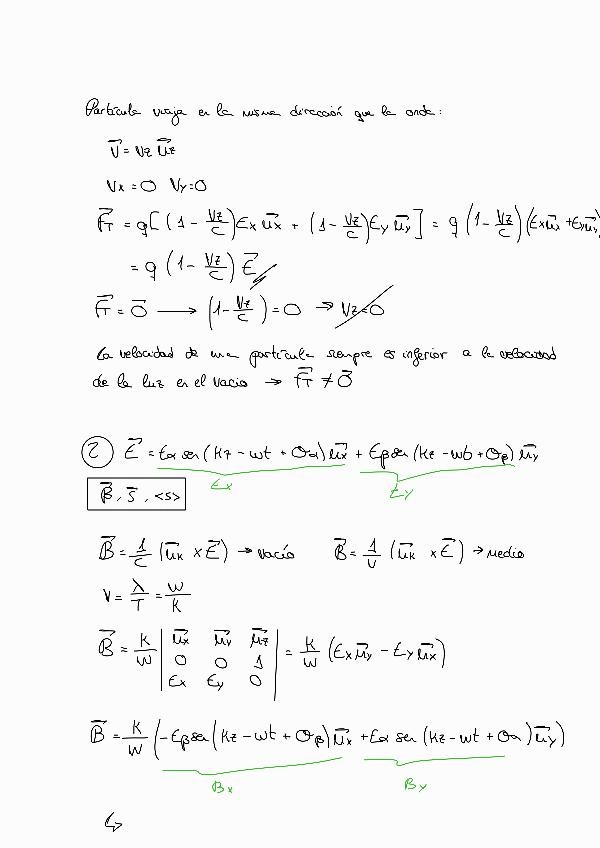 Partícula viaja en la misma dirección que la onda:
v⃗ = vz u⃗z
vx = 0 vy = 0
F⃗T = q[(1 - vz/c)Ex u⃗x + (1 - vz/c)Ey u⃗y] = q(1 - vz/c)(Ex u⃗x + Ey u⃗y
= q(1 - vz/c) E⃗
F⃗T = 0⃗ → (1 - vz/c) = 0 → vz = 0
La velocidad de una partícula siempre es inferior a la velocidad
de la luz en el vacío → F⃗T ≠ 0⃗
2 E⃗ = Eα sen(kz - wt + θα) u⃗x + Eβ sen(kz - wt + θβ) u⃗y
Ex Ey
B⃗, S⃗, <s>
B⃗ = 1/c (u⃗k x E⃗) → vacío B⃗ = 1/v (u⃗k x E⃗) → medio
v = λ/T = w/k
B⃗ = k/w | u⃗x u⃗y u⃗z | = k/w (Ex u⃗y - Ey u⃗x)
0 0 1
Ex Ey 0
B⃗ = k/w (-Eβ sen(kz - wt + θβ) u⃗x + Eα sen(kz - wt + θα) u⃗y)
Bx By
↳